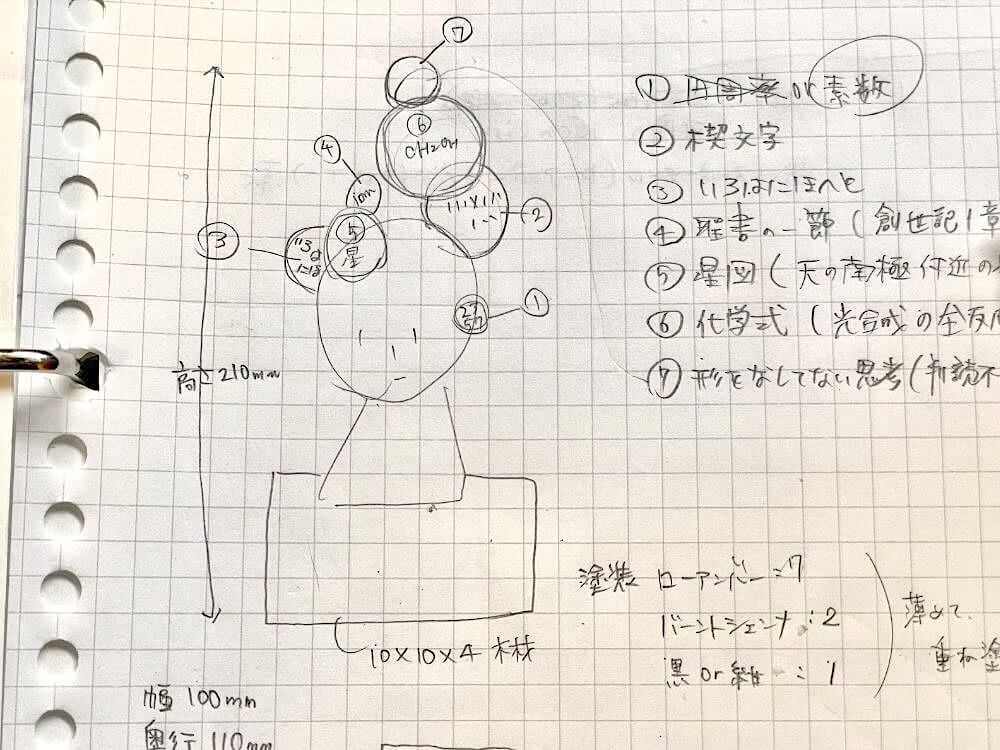 ⑦
⑥
CH2OH
④
②
③
⑤
星
いろは
にほ
①
高さ 210mm
10×10×4 木材
幅 100mm
奥行 110mm
① 円周率 or 素数
② 楔文字
③ いろはにほへと
④ 聖書の一節 (創世記1章
⑤ 星図 (天の南極付近の
⑥ 化学式 (光合成の全反応
⑦ 形をなしてない思考 (判読不
塗装 ローアンバー:7
バーントシェンナ:2
黒 or 紺:1
薄めて、
重ね塗